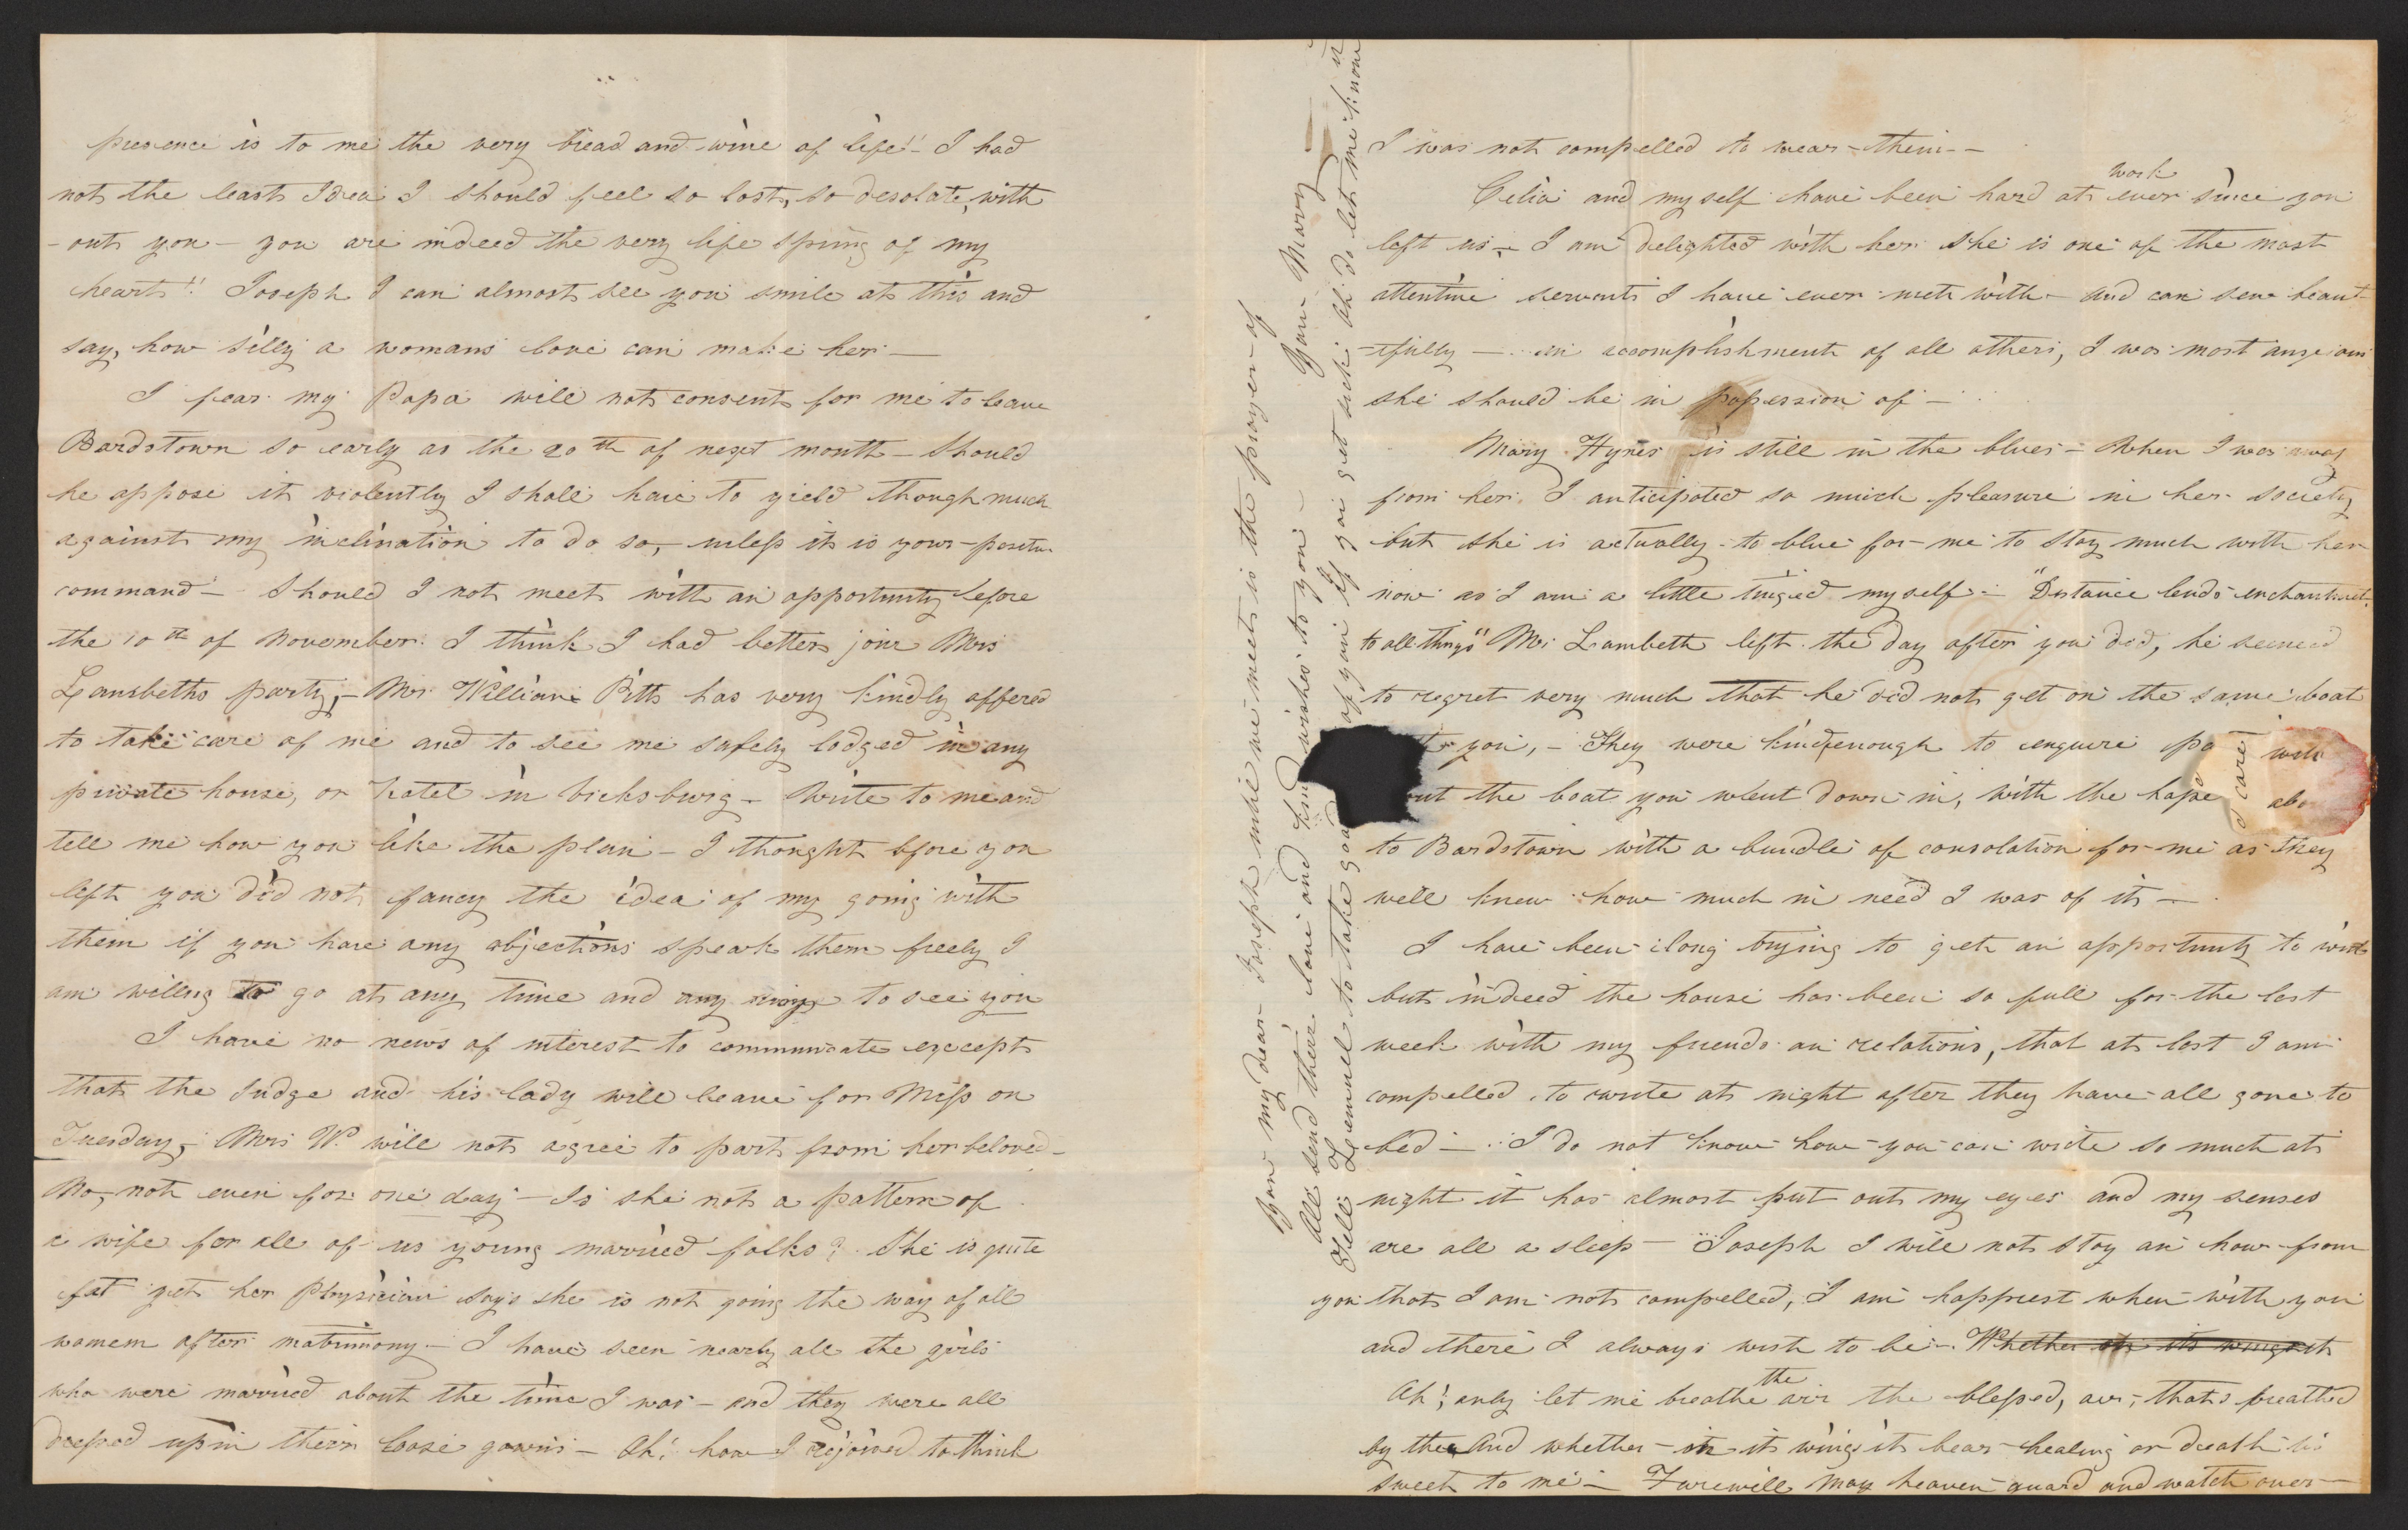 presence is to me the very bread and wine of life!! I had
not the least Idea I should feel so lost, so desolate, with
-out you - you are indeed the very life spring of my
heart!! Joseph I can almost see you smile at this and
say, how silly a womans love can make her —
I fear my Papa will not consent for me to leave
Bardstown so early as the 20th of next month - Should
he oppose it violently I shall have to yield though much
against my inclination to do so, - unless it is your - positive
command - Should I not meet with an opportunity before
the 10th of November I think I had better join Mrs
Lambeths party, - Mr William Pitts has very kindly offered
to take care of me and to see me safely lodged in any
private house, or hotel in Vicksburg - Write to me and
tell me how you like the plan - I thought bfore you
left you did not fancy the idea of my going with
them if you have any objections speak them freely I
am willing to go at any time and any way to see you
I have no news of interest to communicate except
that the Judge and his lady will leave for Miss on
Tuesday, Mrs W. will not agree to part from her beloved -
No, not even for one day - Is she not a pattern of
a wife for all of us young married folks? She is quite
fat yet her Physician says she is not going the way of all
womem after matrimony - I have seen nearly all the girls
who were married about the time I was - and they were all
dressed up in their loose gowns - Ah! how I rejoiced to think
I was not compelled to wear them -
Celia and myself have been hard at work ever since you
left us, - I am delighted with her she is one of the most
attentive servants I have ever met with - and can sew beaut
-ifully - an accomplishment of all others, I was most anxious
she should be in possession of -
Mary Hynes is still in the blues - When I was away
from her I anticipated so much pleasure in her society
but she is actually to blue for me to stay much with her
now as I am a little tinged myself - "Distance lends enchantment
to all things" Mr Lambeth left the day after you did, he seemed
to regret very much that he did not get on the same boat
you, - They were kind enough to enquire
the boat you went down in, with the hope
to Bardstown with a bundle of consolation for me as they
well knew how much in need I was of it -
I have been long trying to get an opportunity to write
but indeed the house has been so full for the last
week with my friends an relations, that at last I am
compelled to write at night after they have all gone to
bed - I do not know how you can write so much at
night it has almost put out my eyes and my senses
are all a sleep - Joseph I will not stay an hour from
you that I am not compelled, I am happiest when with you
and there I always wish to be - Whether on its wings it
Ah! only let me breathe the air the blessed, air, thats breathed
by thee And whether on its wings it bear healing or death tis
sweet to me - Farewell may heaven guard and watch over
you my dear Joseph until we meet is the prayer of
Your Mary
All send there love and kind wishes to you -
Tell Lemuel to take good care of you if you get sick do let me know it
care
with